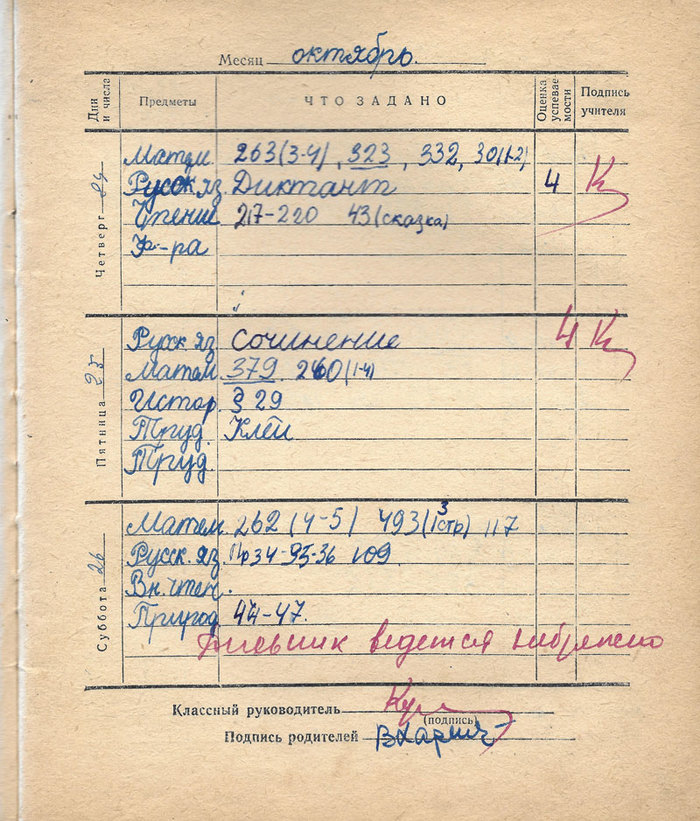 Месяц октябрь
Дни и числа Предметы ЧТО ЗАДАНО Оценка успеваемости Подпись учителя
Четверг 24
Матем. 263(3-4), 323, 332, 30(1-2)
Русск яз. Диктант 4
Чтение 217-220 43(сказка)
Ф-ра
Пятница 25
Русск яз. Сочинение 4
Матем. 379. 260(1-4)
Истор. § 29
Труд. Клей
Труд.
Суббота 26
Матем. 262 (4-5) 493(3 стр) 117
Русск. яз. 109.
Вн. чтен.
Природ. 44-47.
Дневник ведется небрежно
Классный руководитель
(подпись)
Подпись родителей